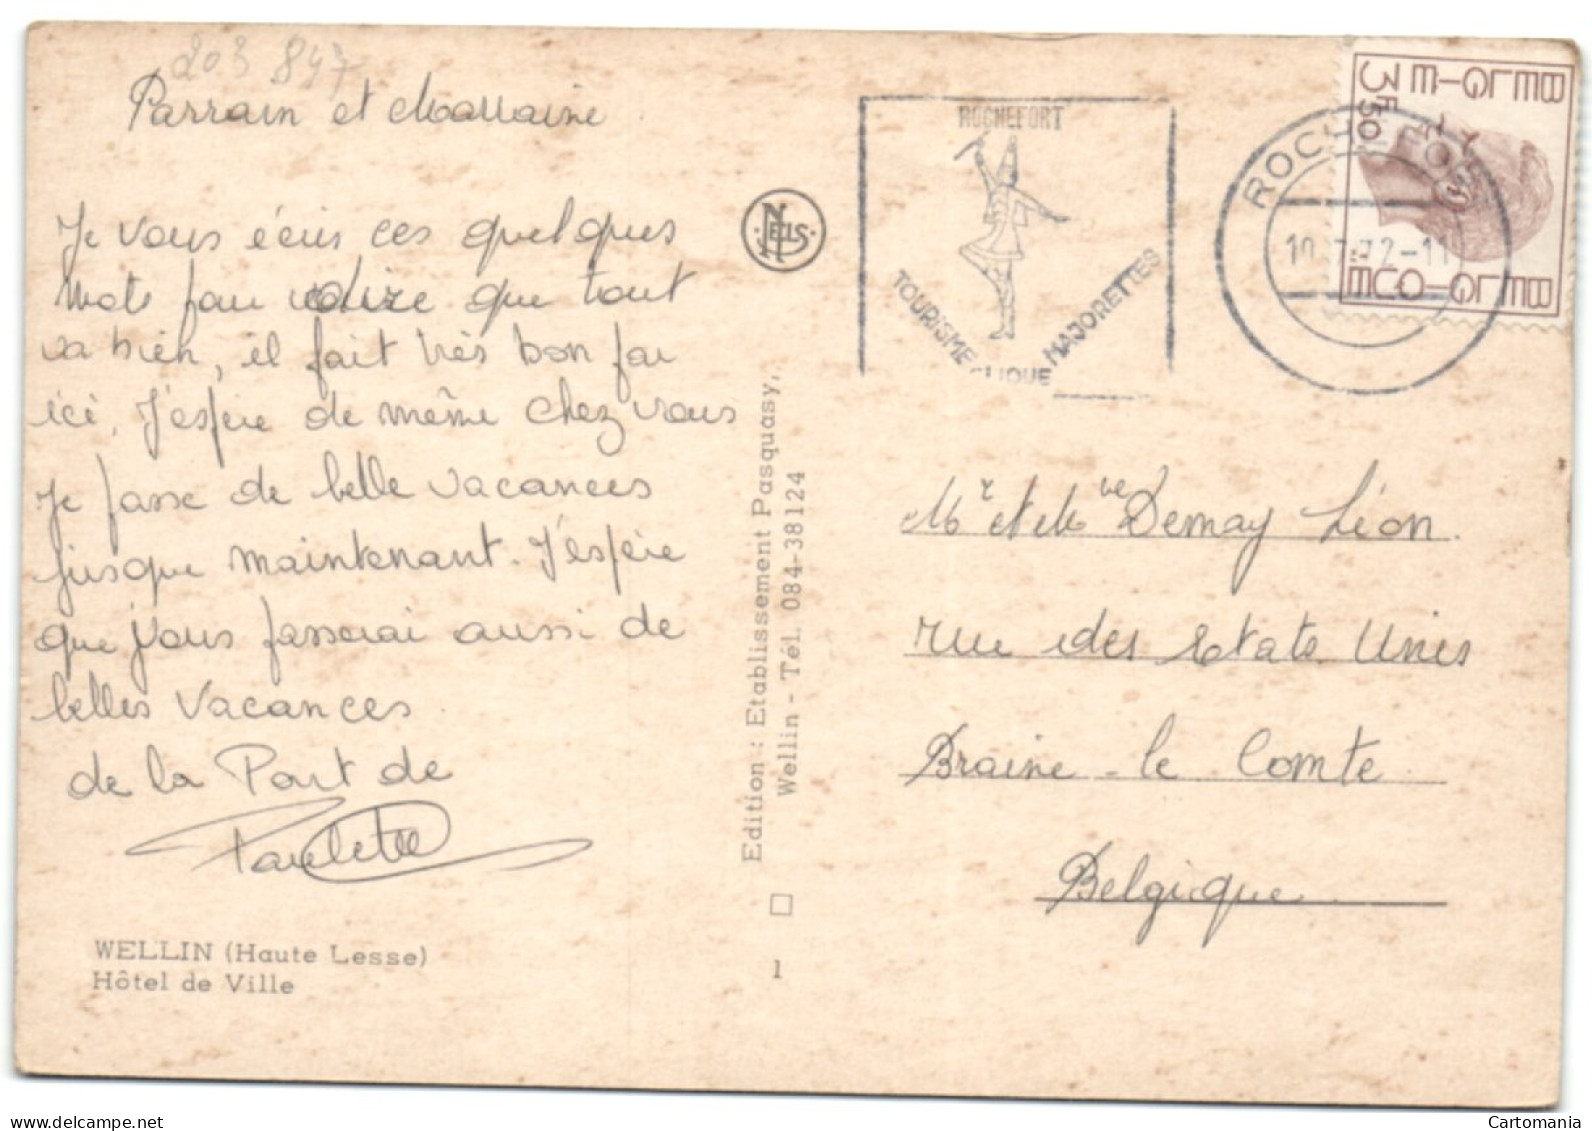 203 847
Parrain et Marraine
Je vous écris ces quelques
mots pour vous dire que tout
va bien, il fait très bon par
ici. J'espère de même chez vous
Je passe de belle vacances
jusque maintenant. J'espère
que vous passerai aussi de
belles vacances
de la Part de
Paulette
WELLIN (Haute Lesse)
Hôtel de Ville
NELS
Edition : Etablissement Pasquasy,
Wellin - Tél. 084-38124
1
ROCHEFORT
TOURISME CLIQUE MAJORETTES
ROCHEFORT
72-11
BELGIE
3F50
BELGIQUE
Mr et Mme Demay Léon.
rue des Etats Unis
Braine-le Comte
Belgique
Cartomania